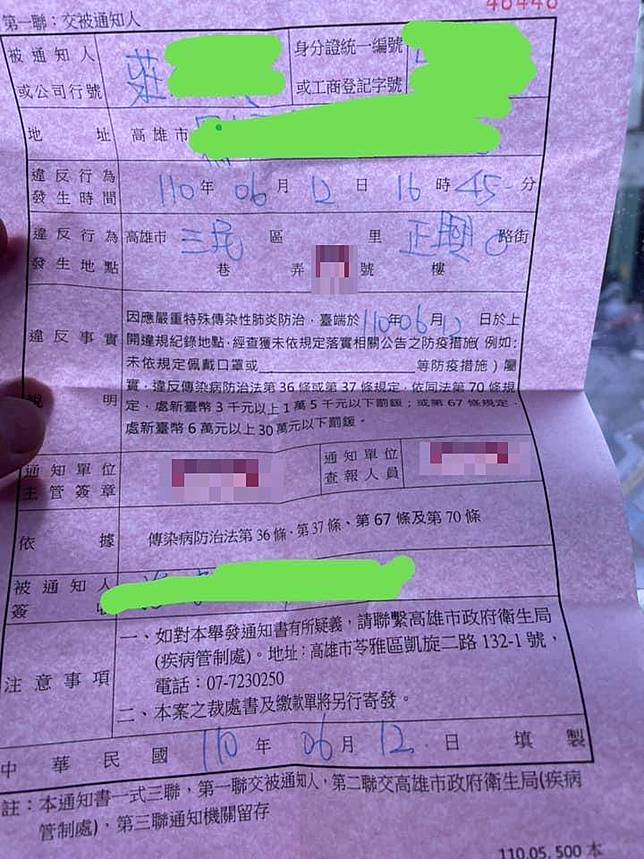 48446
第一聯：交被通知人
被通知人
或公司行號
莊
身分證統一編號
或工商登記字號
地 址
高雄市
違反行為
發生時間
110年06月12日16時45分
違反行為
發生地點
高雄市三民區 里正興路街
巷 弄 號 樓
違反事實
說明
因應嚴重特殊傳染性肺炎防治，臺端於110年06月12日於上
開違規紀錄地點，經查獲未依規定落實相關公告之防疫措施(例如：
未依規定佩戴口罩或 等防疫措施)屬
實，違反傳染病防治法第36條或第37條規定，依同法第70條規
定，處新臺幣3千元以上1萬5千元以下罰鍰；或第67條規定，
處新臺幣6萬元以上30萬元以下罰鍰。
通知單位
主管簽章
通知單位
查報人員
依據
傳染病防治法第36條、第37條、第67條及第70條
被通知人
簽
注意事項
一、如對本舉發通知書有所疑義，請聯繫高雄市政府衛生局
(疾病管制處)。地址：高雄市苓雅區凱旋二路132-1號，
電話：07-7230250
二、本案之裁處書及繳款單將另行寄發。
中華民國110年06月12日填製
註：本通知書一式三聯，第一聯交被通知人，第二聯交高雄市政府衛生局(疾病
管制處)，第三聯通知機關留存
110.05. 500本